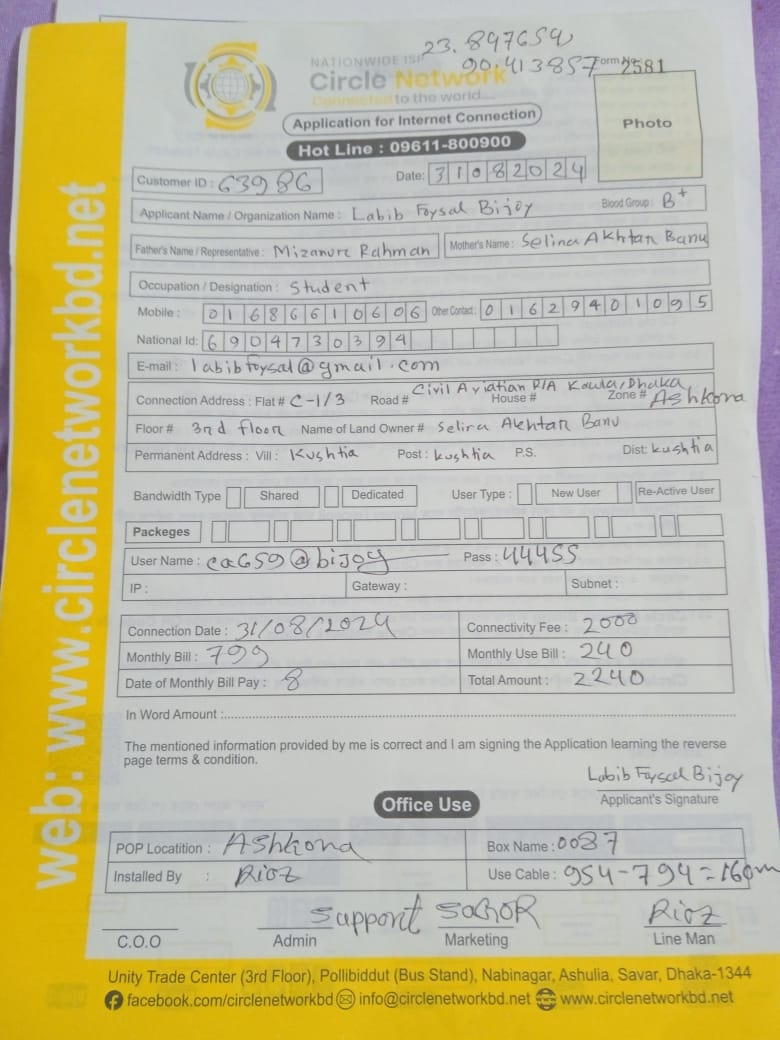 23.897654
90.413857
NATIONWIDE ISP
Form No 2581
Circle Network
Connected to the world...
Application for Internet Connection
Photo
Hot Line : 09611-800900
Customer ID : 63986
Date: 31082024
Applicant Name / Organization Name : Labib Foysal Bijoy Blood Group : B+
Father's Name / Representative : Mizanur Rahman Mother's Name : Selina Akhtar Banu
Occupation / Designation : Student
Mobile : 01686610606 Other Contact : 01629401095
National Id: 6904730394
E-mail : labibfoysal@gmail.com
Connection Address : Flat # C-1/3 Road # Civil Aviation P/A Kawla, Dhaka House # Zone # Ashkona
Floor # 3rd floor Name of Land Owner # Selina Akhtar Banu
Permanent Address : Vill : Kushtia Post : kushtia P.S. Dist: kushtia
Bandwidth Type Shared Dedicated User Type : New User Re-Active User
Packeges
User Name : ca659@bijoy Pass : 44455
IP : Gateway : Subnet :
Connection Date : 31/08/2024 Connectivity Fee : 2000
Monthly Bill : 799 Monthly Use Bill : 240
Date of Monthly Bill Pay : 8 Total Amount : 2240
In Word Amount :
The mentioned information provided by me is correct and I am signing the Application learning the reverse
page terms & condition.
Labib Foysal Bijoy
Applicant's Signature
Office Use
POP Locatition : Ashkona Box Name : 0087
Installed By : Rioz Use Cable : 954-794=160m
support SAGOR Rioz
C.O.O Admin Marketing Line Man
Unity Trade Center (3rd Floor), Pollibiddut (Bus Stand), Nabinagar, Ashulia, Savar, Dhaka-1344
facebook.com/circlenetworkbd info@circlenetworkbd.net www.circlenetworkbd.net
web: www.circlenetworkbd.net